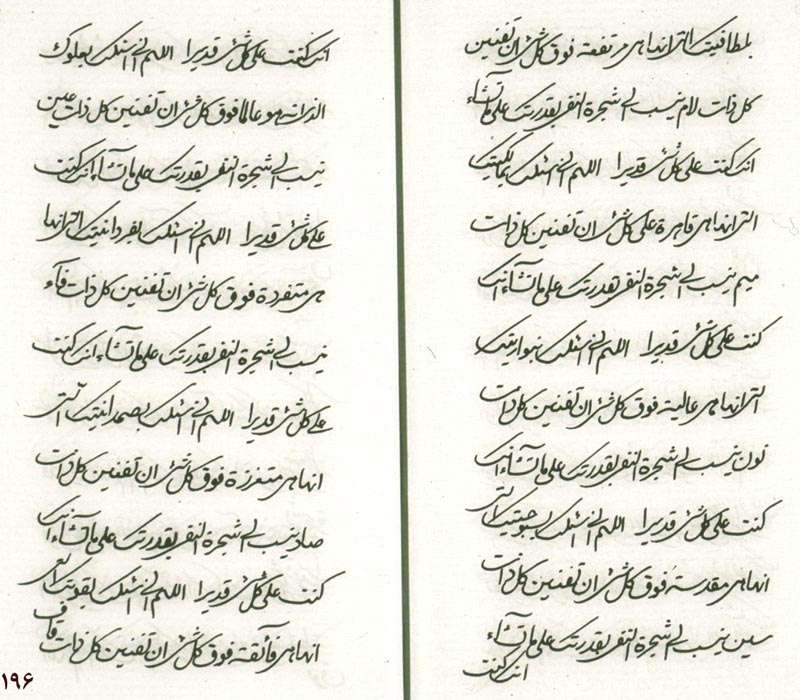 بلطافيتك التي انها هي مرتفعة فوق كل شئ ان تفنين
كل ذات لام ينسب الى شجرة النفي بقدرتك على ما تشاء
انك كنت على كل شئ قديرا اللهم اني اسئلك بمالكيتك
التي انها هي قاهرة على كل شئ ان تفنين كل ذات
ميم ينسب الى شجرة النفي بقدرتك على ما تشاء انك
كنت على كل شئ قديرا اللهم اني اسئلك بنواريتك
التي انها هي عالية فوق كل شئ ان تفنين كل ذات
نون ينسب الى شجرة النفي بقدرتك على ما تشاء انك
كنت على كل شئ قديرا اللهم اني اسئلك بسبوحيتك التي
انها هي مقدسة فوق كل شئ ان تفنين كل ذات
سين ينسب الى شجرة النفي بقدرتك على ما تشاء
انك كنت
انك كنت على كل شئ قديرا اللهم اني اسئلك بعلوك
الذي انه هو عالما فوق كل شئ ان تفنين كل ذات عين
ينسب الى شجرة النفي بقدرتك على ما تشاء انك كنت
على كل شئ قديرا اللهم اني اسئلك بفردانيتك التي انها
هي متفردة فوق كل شئ ان تفنين كل ذات فاء
ينسب الى شجرة النفي بقدرتك على ما تشاء انك كنت
على كل شئ قديرا اللهم اني اسئلك بصمدانيتك التي
انها هي متعززة فوق كل شئ ان تفنين كل ذات
صاد ينسب الى شجرة النفي بقدرتك على ما تشاء انك
كنت على كل شئ قديرا اللهم اني اسئلك بقوتك التي
انها هي فائقة فوق كل شئ ان تفنين كل ذات قاف
۱۹۶